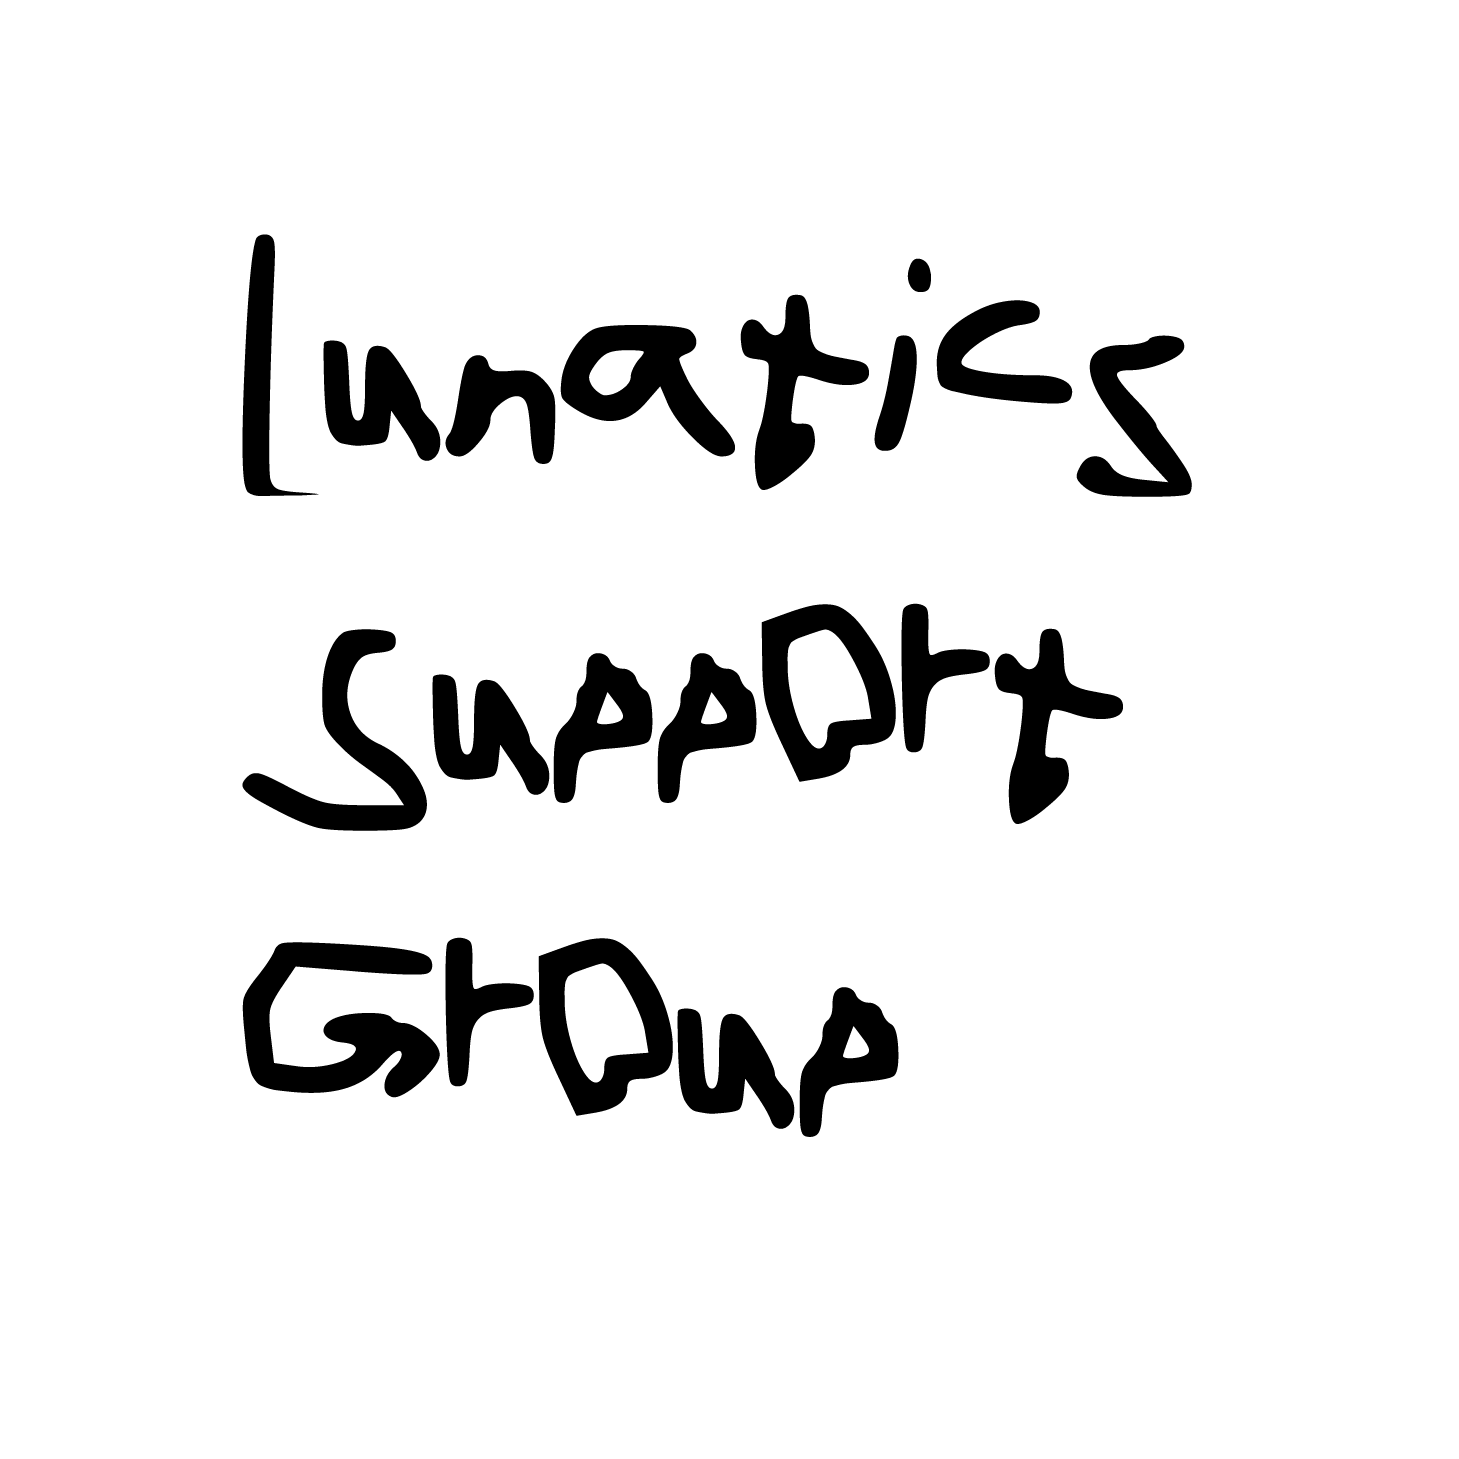 Lunatics
Support
Group